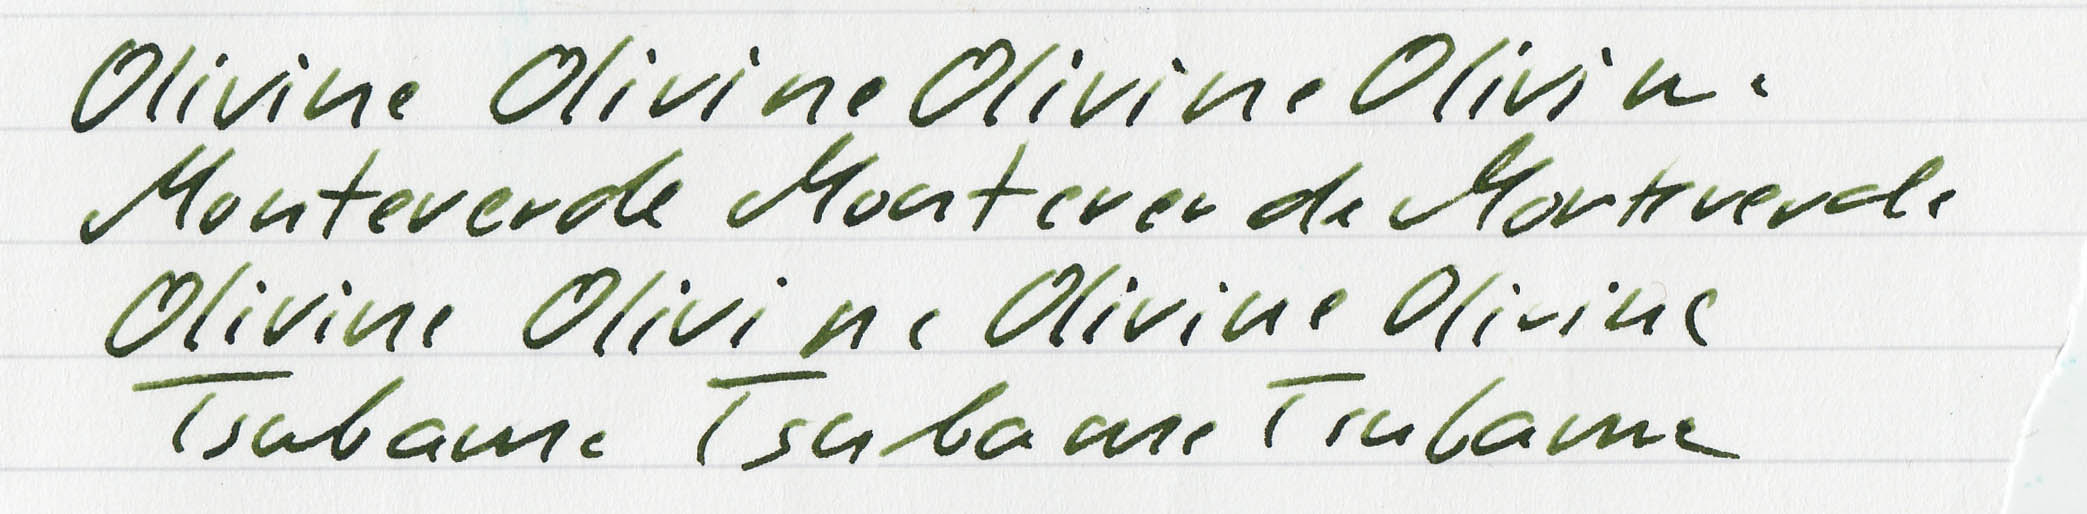 Olivine Olivine Olivine Olivine
Monteverde Monteverde Monteverde
Olivine Olivine Olivine Olivine
Tsubame Tsubame Tsubame